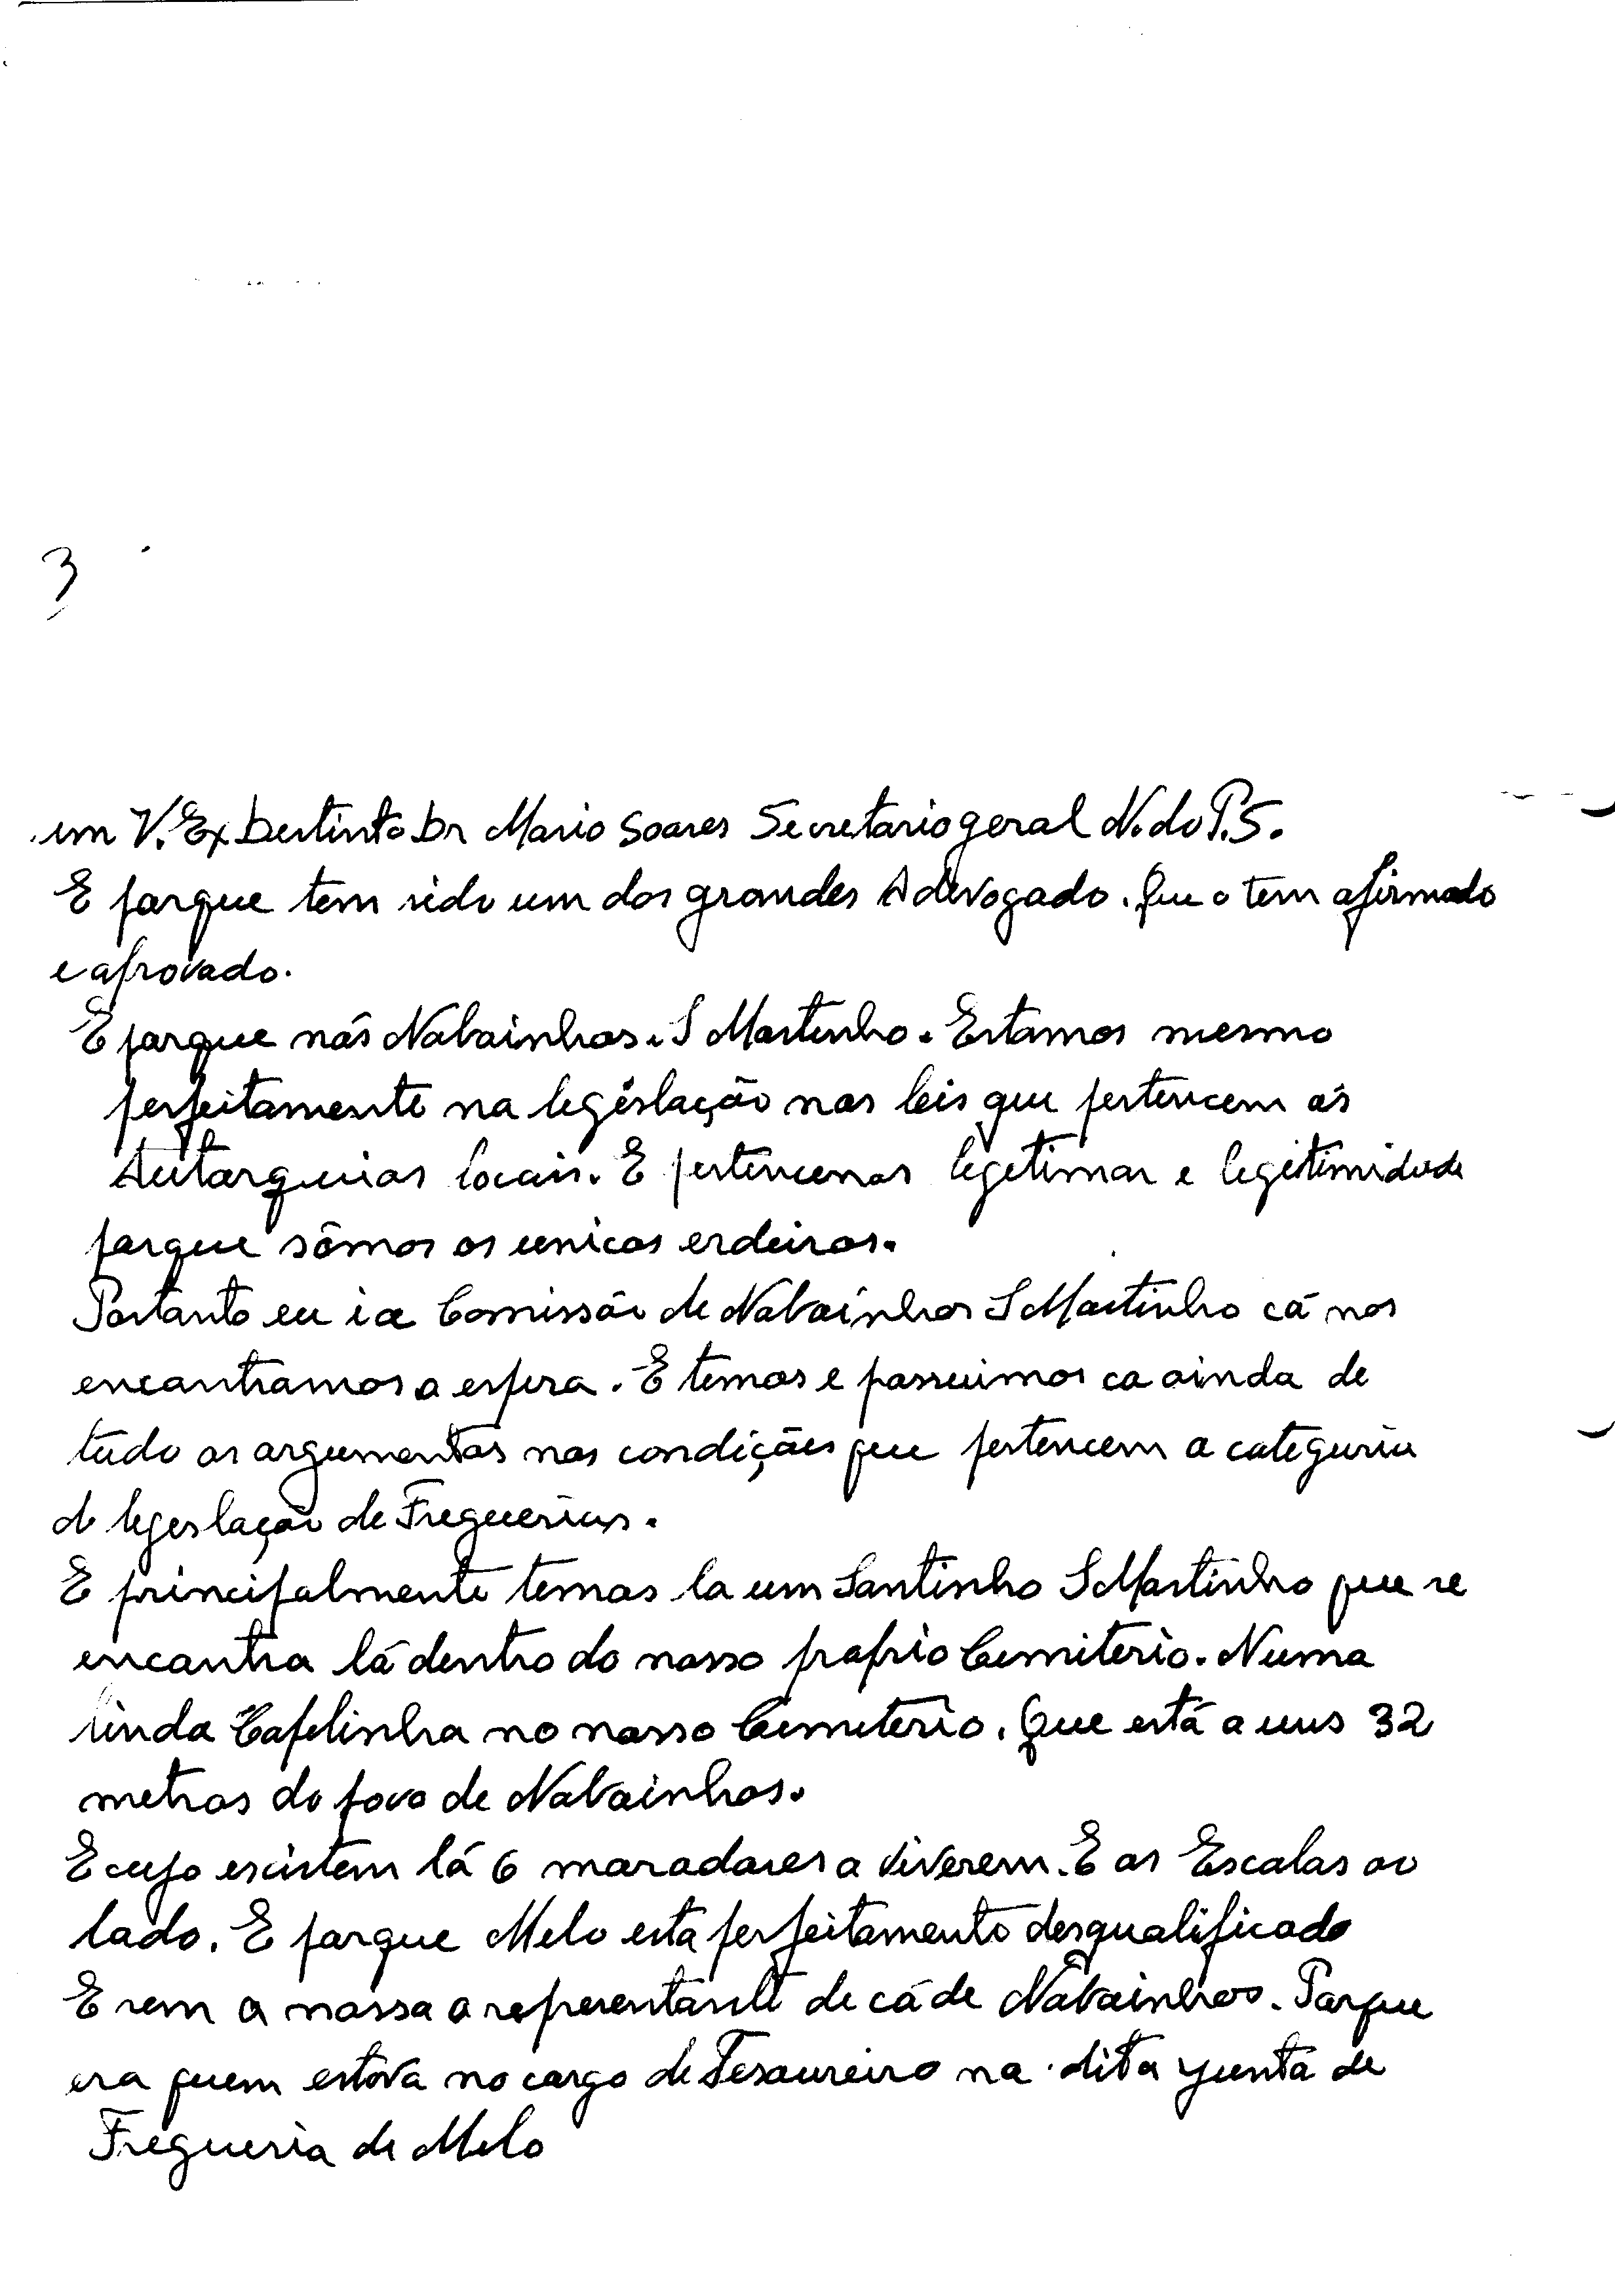 3
um V. Ex Destinto Dr Mario Soares Secretario geral N. do P.S.
E porque tem sido um dos grandes Adevogado. Que o tem afirmado
e aprovado.
E porque nós Nabainhos. S Martinho. Estamos mesmo
perfeitamente na legêslação nas leis que pertencem ás
Autarquias locais. E pertencenos legetimar e legitimidade
porque sômos os unicos erdeiros.
Portanto eu i a Comissão de Nabainhos S Martinho cá nos
encontramos a espera. E temos e possuimos ca ainda de
tudo os argumentos nas condições que pertencem a categuria
d legeslação de Freguerias.
E principalmente temos la um Santinho S Martinho que se
encontra lá dentro do nosso proprio Cemiterio. Numa
linda Capelinha no nosso Cemiterio. Que está a uns 32
metros do povo de Nabainhos.
E cujo escistem lá 6 moradores a viverem. E as Escolas ao
lado. E porque Melo esta perfeitamento desqualificado
E sem a nossa a representante de cá de Nabainhos. Porque
era quem estova no cargo de Tesoureiro na dita yunta de
Fregueria de Melo